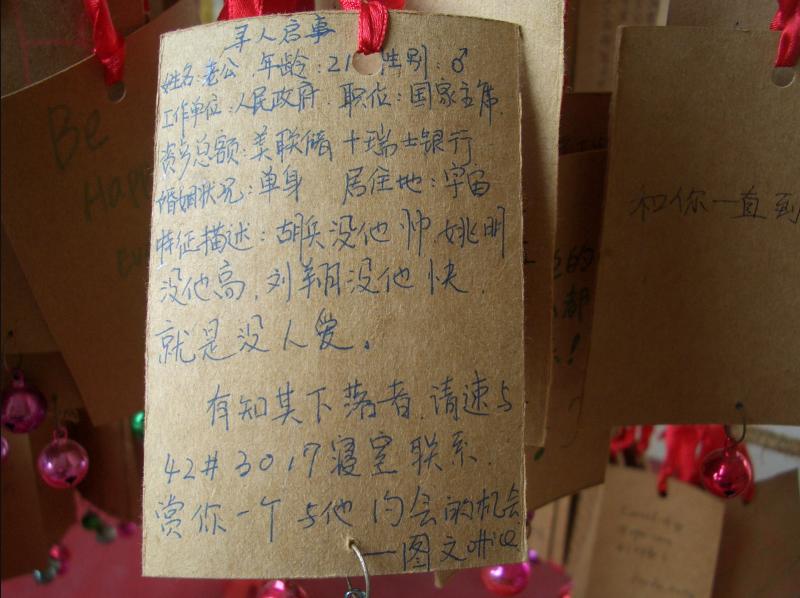 寻人启事
姓名:老公 年龄:21 性别:♂
工作单位:人民政府 职位:国家主席
资产总额:美联储+瑞士银行
婚姻状况:单身 居住地:宇宙
特征描述:胡兵没他帅,姚明
没他高,刘翔没他快,
就是没人爱。
有知其下落者,请速与
42#3017寝室联系,
赏你一个与他约会的机会
—图文office
Be
Happ
和你一直到
的
都
!